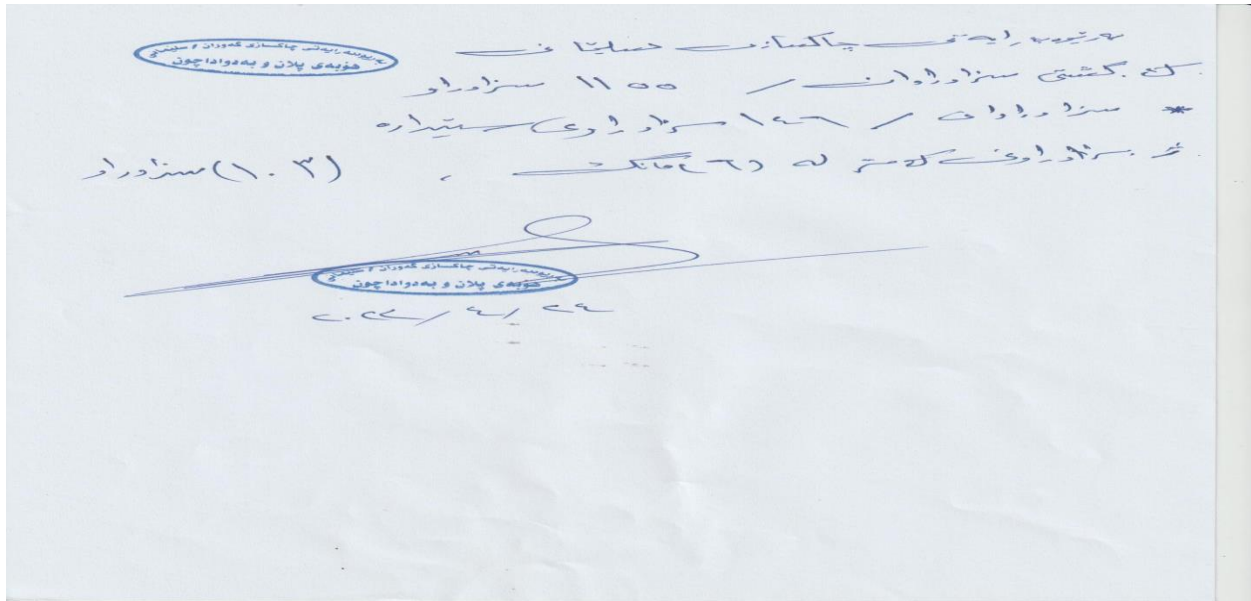 بەڕێوەبەرایەتی چاکسازی گەوران / سلێمانی
هۆبەی پلان و بەدواداچون
بەڕێوەبەرایەتی چاکسازی سلێمانی
کۆی گشتی سزادراوان / ١١٥٥ سزادراو
* سزادراوانی / ١٤٦ سزادراوی سێدارە
* سزادراوی کەمتر لە (٦) مانگ ، (١٠٣) سزادراو
بەڕێوەبەرایەتی چاکسازی گەوران / سلێمانی
هۆبەی پلان و بەدواداچون
٢٠٢٣/٤/٢٤